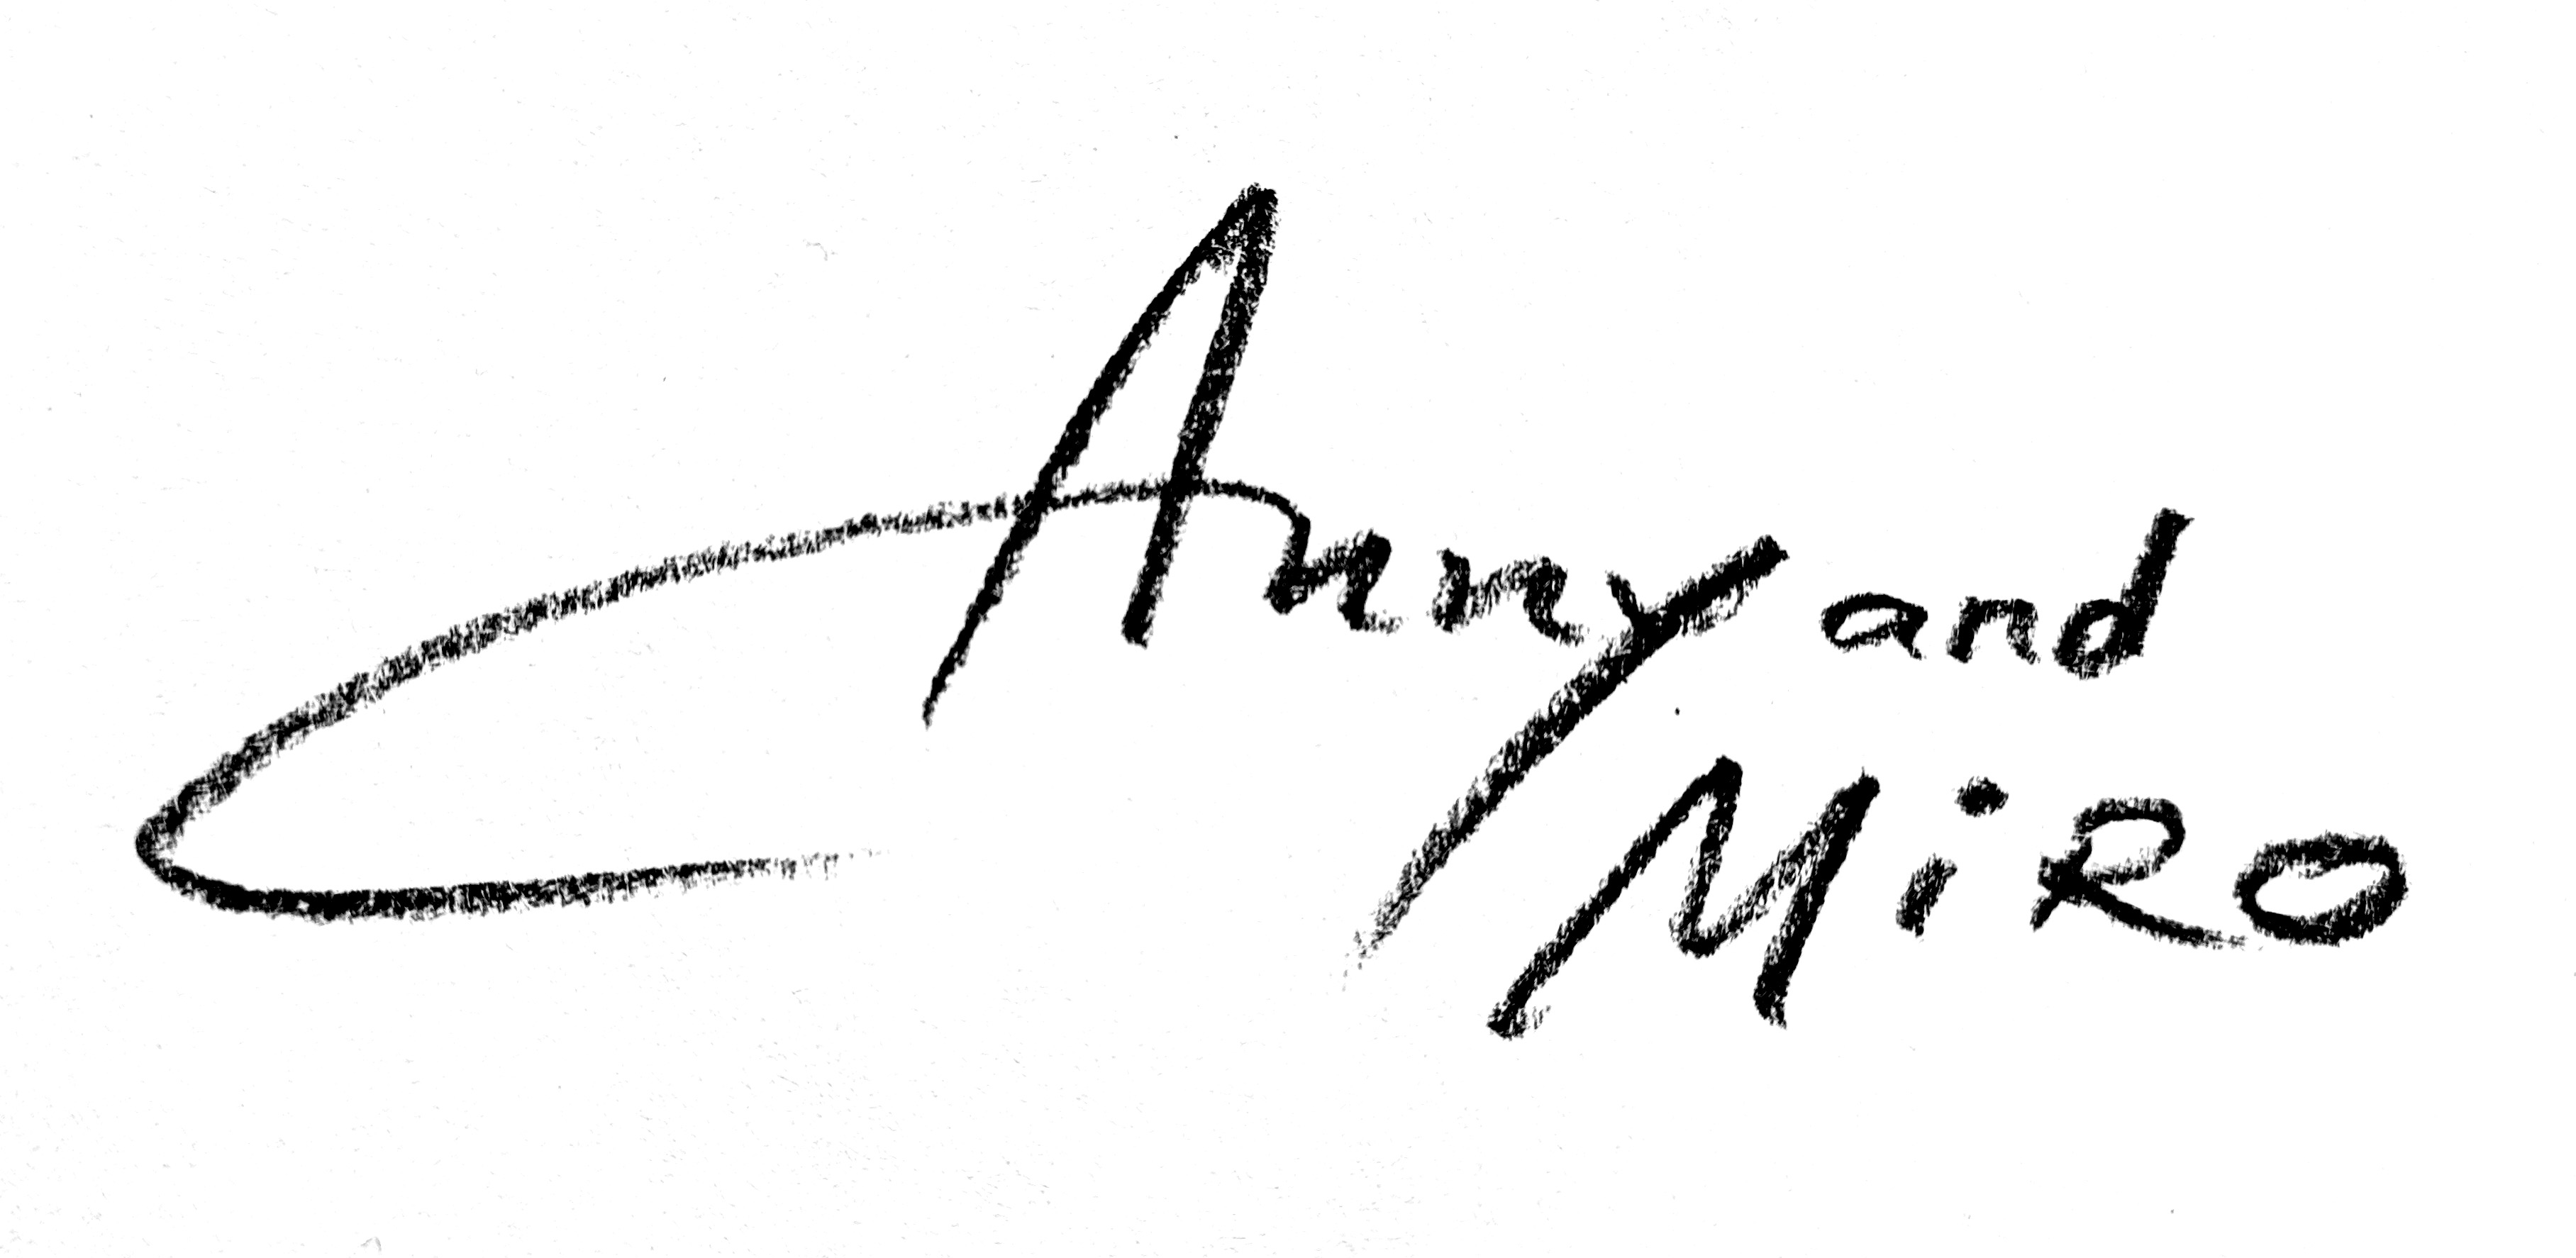 Anny and
MiRO